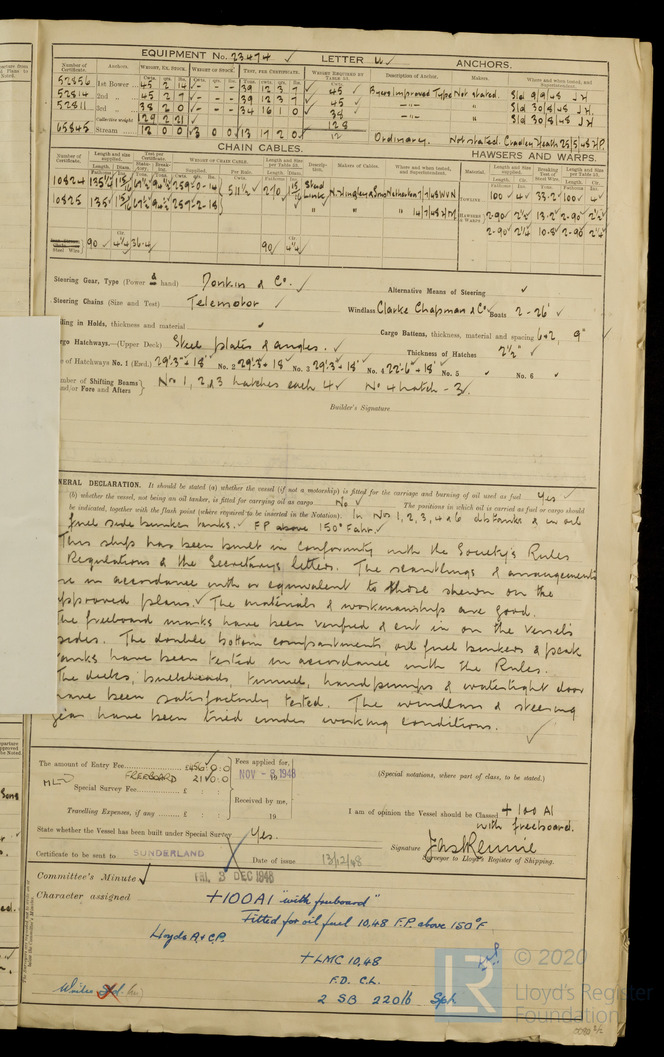 EQUIPMENT No. 23474 ✓ LETTER U ✓ ANCHORS.
Number of Certificate. Anchors. WEIGHT, EX. STOCK. WEIGHT OF STOCK. TEST, PER CERTIFICATE. WEIGHT REQUIRED BY TABLE 53. Description of Anchor. Makers. Where and when tested, and Superintendent.
52856 1st Bower 45 2 14 - - - 39 12 3 7 45 ✓ Byers Improved Type Not stated. Sld 9/9/48 J.H.
52814 2nd " 45 2 7 - - - 39 12 3 7 45 ✓ " Sld 30/8/48 J.H.
52811 3rd " 38 2 0 - - - 34 16 1 0 38 " Sld 30/8/48 J.H.
Collective weight 129 2 21 ✓ 128
65845 Stream 12 0 0 3 0 0 13 17 2 0 12 Ordinary. Not stated. Cradley Heath 25/5/48 H.P.
CHAIN CABLES. HAWSERS AND WARPS.
Number of Certificate. Length and size supplied. Test per Certificate. WEIGHT OF CHAIN CABLE. Length and Size per Table 53. Description. Makers of Cables. Where and when tested, and Superintendent. Material. Length and Size supplied. Breaking Test of Steel Wire. Length and Size per Table 53.
10824 135 259-0-14 511½ ✓ 270 Stud Link N. Hingley & Sons Netherton
10825 135 257-2-18 " " "
TOWLINE 100 4 33.2 100 4
HAWSERS & WARPS 2-90 2½ 13.2 2-90
2-90 2¼ 10.8 2-90
Steel Wire 90 4¼ 36.4 90 4¼
Steering Gear, Type (Power & hand) Donkin & Co. ✓ Alternative Means of Steering ✓
Steering Chains (Size and Test) Telemotor ✓ Windlass Clarke Chapman & Co ✓ Boats 2-26' ✓
ling in Holds, thickness and material ✓ Cargo Battens, thickness, material and spacing 6×2, 9" ✓
rgo Hatchways.—(Upper Deck) Steel plates & angles. ✓ Thickness of Hatches 2½" ✓
e of Hatchways No. 1 (Fwd.) 29'.3" × 18' No. 2 29'.3 × 18' No. 3 29'.3 × 18' No. 4 22'.6 × 18' No. 5 ✓ No. 6 ✓
mber of Shifting Beams and/or Fore and Afters } Nos 1, 2 & 3 hatches each 4 ✓ No 4 hatch - 3. ✓
Builder's Signature
NERAL DECLARATION. It should be stated (a) whether the vessel (if not a motorship) is fitted for the carriage and burning of oil used as fuel Yes ✓
(b) whether the vessel, not being an oil tanker, is fitted for carrying oil as cargo No ✓ The positions in which oil is carried as fuel or cargo should
be indicated, together with the flash point (where required to be inserted in the Notation). In Nos 1, 2, 3, 4 & 6 db tanks & in oil
fuel side bunker tanks. ✓ FP above 150° Fahr. ✓
This ship has been built in conformity with the Society's Rules
Regulations & the Secretary's letters. The scantlings & arrangements
re in accordance with or equivalent to those shewn on the
approved plans. ✓ The materials & workmanship are good.
The freeboard marks have been verified & cut in on the vessel's
sides. The double bottom compartments, oil fuel bunkers & peak
tanks have been tested in accordance with the Rules.
The decks, bulkheads, tunnel, handpumps & watertight door
have been satisfactorily tested. The windlass & steering
gear have been tried under working conditions. ✓
The amount of Entry Fee £456:0:0 Fees applied for,
FREEBOARD 21:0:0 NOV - 8 1948 (Special notations, where part of class, to be stated.)
Special Survey Fee £ : :
Received by me,
Travelling Expenses, if any £ : : 19 I am of opinion the Vessel should be Classed +100 A1
with freeboard.
State whether the Vessel has been built under Special Survey Yes.
Certificate to be sent to SUNDERLAND Date of issue 13/12/48 Signature Jas Rennie
Surveyor to Lloyd's Register of Shipping.
Committee's Minute FRI. 3 DEC 1948
Character assigned +100A1 "with freeboard"
Fitted for oil fuel 10,48 F.P. above 150°F
Lloyds A & C.P.
+LMC 10,48
F.D. C.L.
2 SB 220 lb Sph
LR
© 2020
Lloyd's Register
Foundation